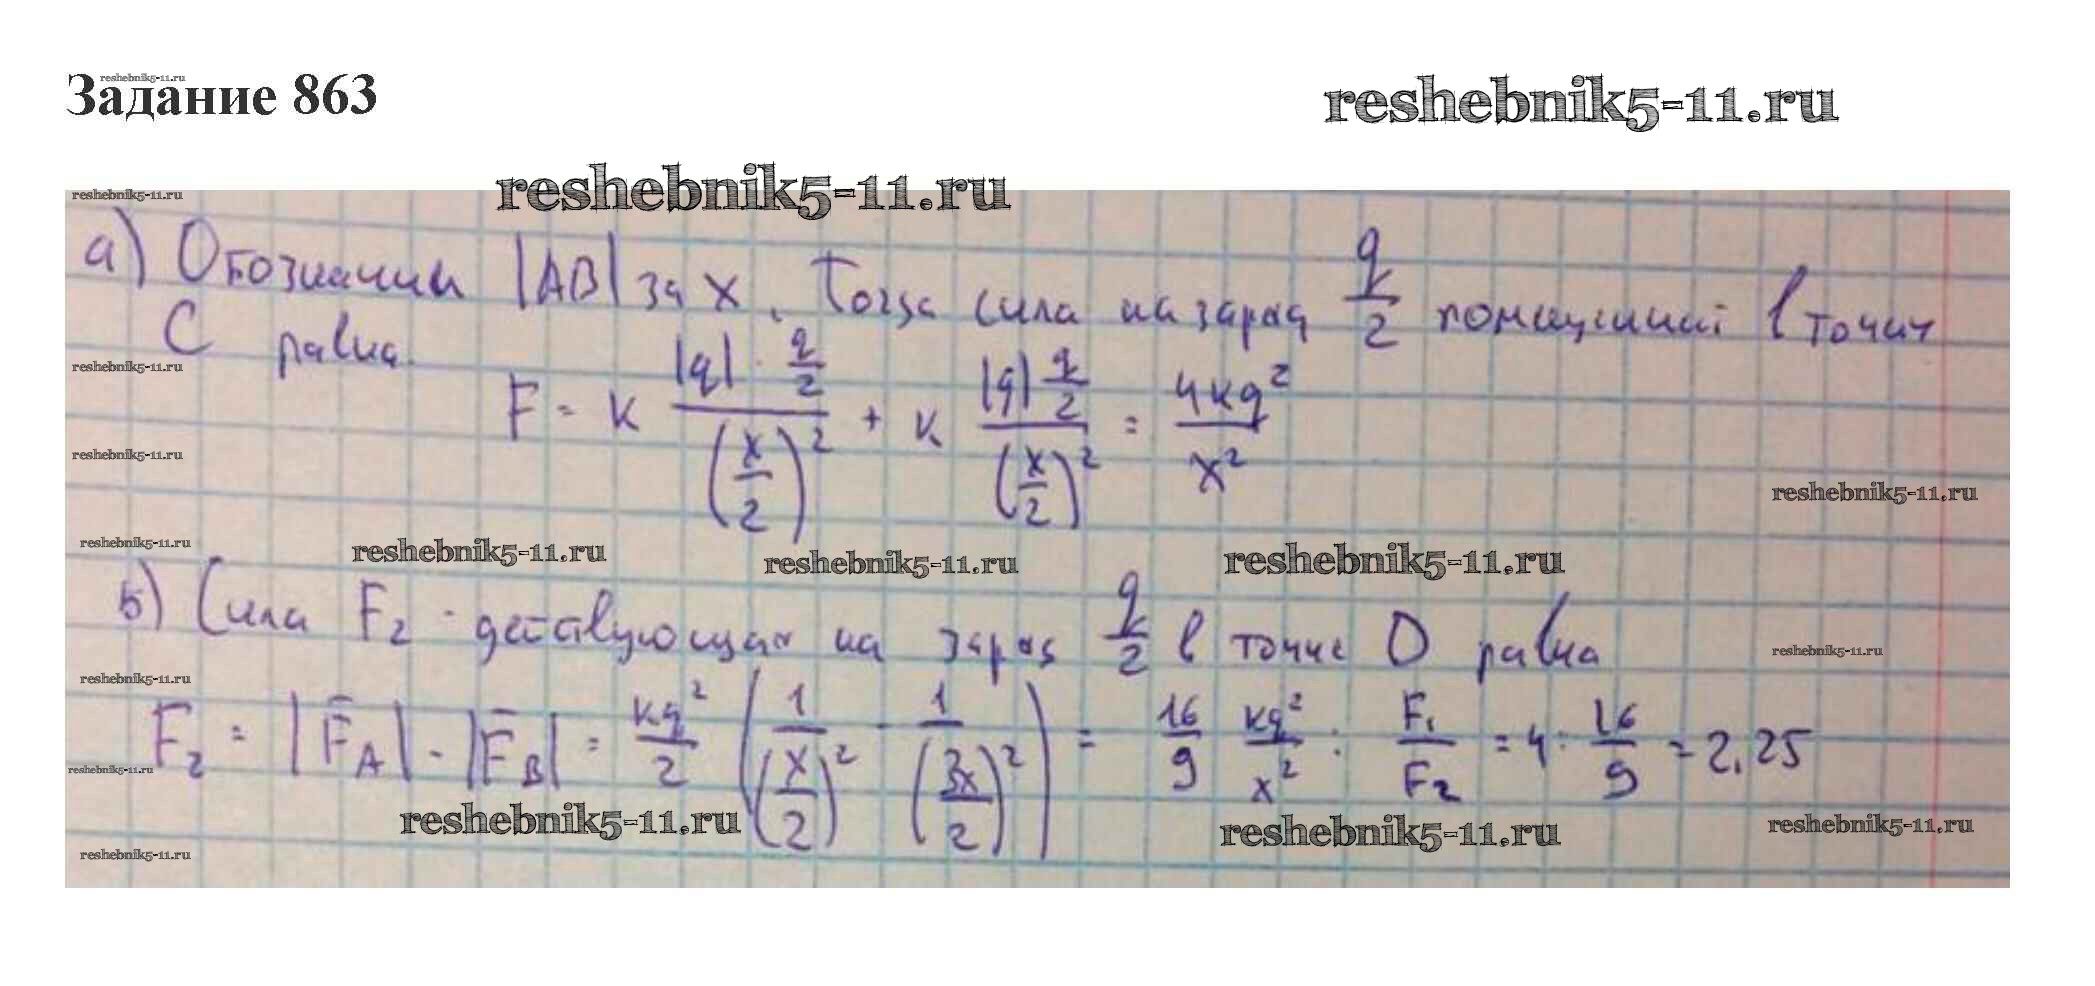 reshebnik5-11.ru
Задание 863
reshebnik5-11.ru
reshebnik5-11.ru
reshebnik5-11.ru
а) Обозначим |AB| за x. Тогда сила на заряд q/2 помещенный в точку
C равна.
reshebnik5-11.ru
F = k |q| · q/2 / (x/2)² + k |q| q/2 / (x/2)² = 4kq² / x²
reshebnik5-11.ru
reshebnik5-11.ru
reshebnik5-11.ru
reshebnik5-11.ru
reshebnik5-11.ru
reshebnik5-11.ru
б) Сила F₂ - действующая на заряд q/2 в точке D равна
reshebnik5-11.ru
reshebnik5-11.ru
F₂ = |F̄_A| - |F̄_B| = kq²/2 (1/(x/2)² - 1/(3x/2)²) = 16/9 kq²/x² ; F₁/F₂ = 4 : 16/9 = 2,25
reshebnik5-11.ru
reshebnik5-11.ru
reshebnik5-11.ru
reshebnik5-11.ru
reshebnik5-11.ru